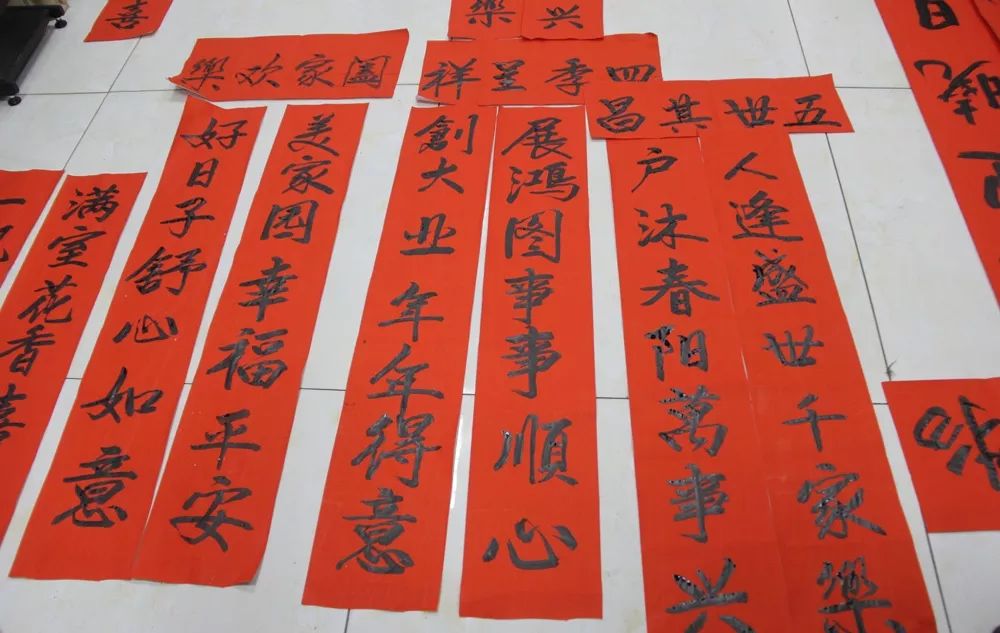 喜
兴樂
五世其昌
人逢盛世千家樂
户沐春阳萬事兴
四季呈祥
展鸿图事事順心
創大业年年得意
阖家欢樂
美家园幸福平安
好日子舒心如意
满室花香喜